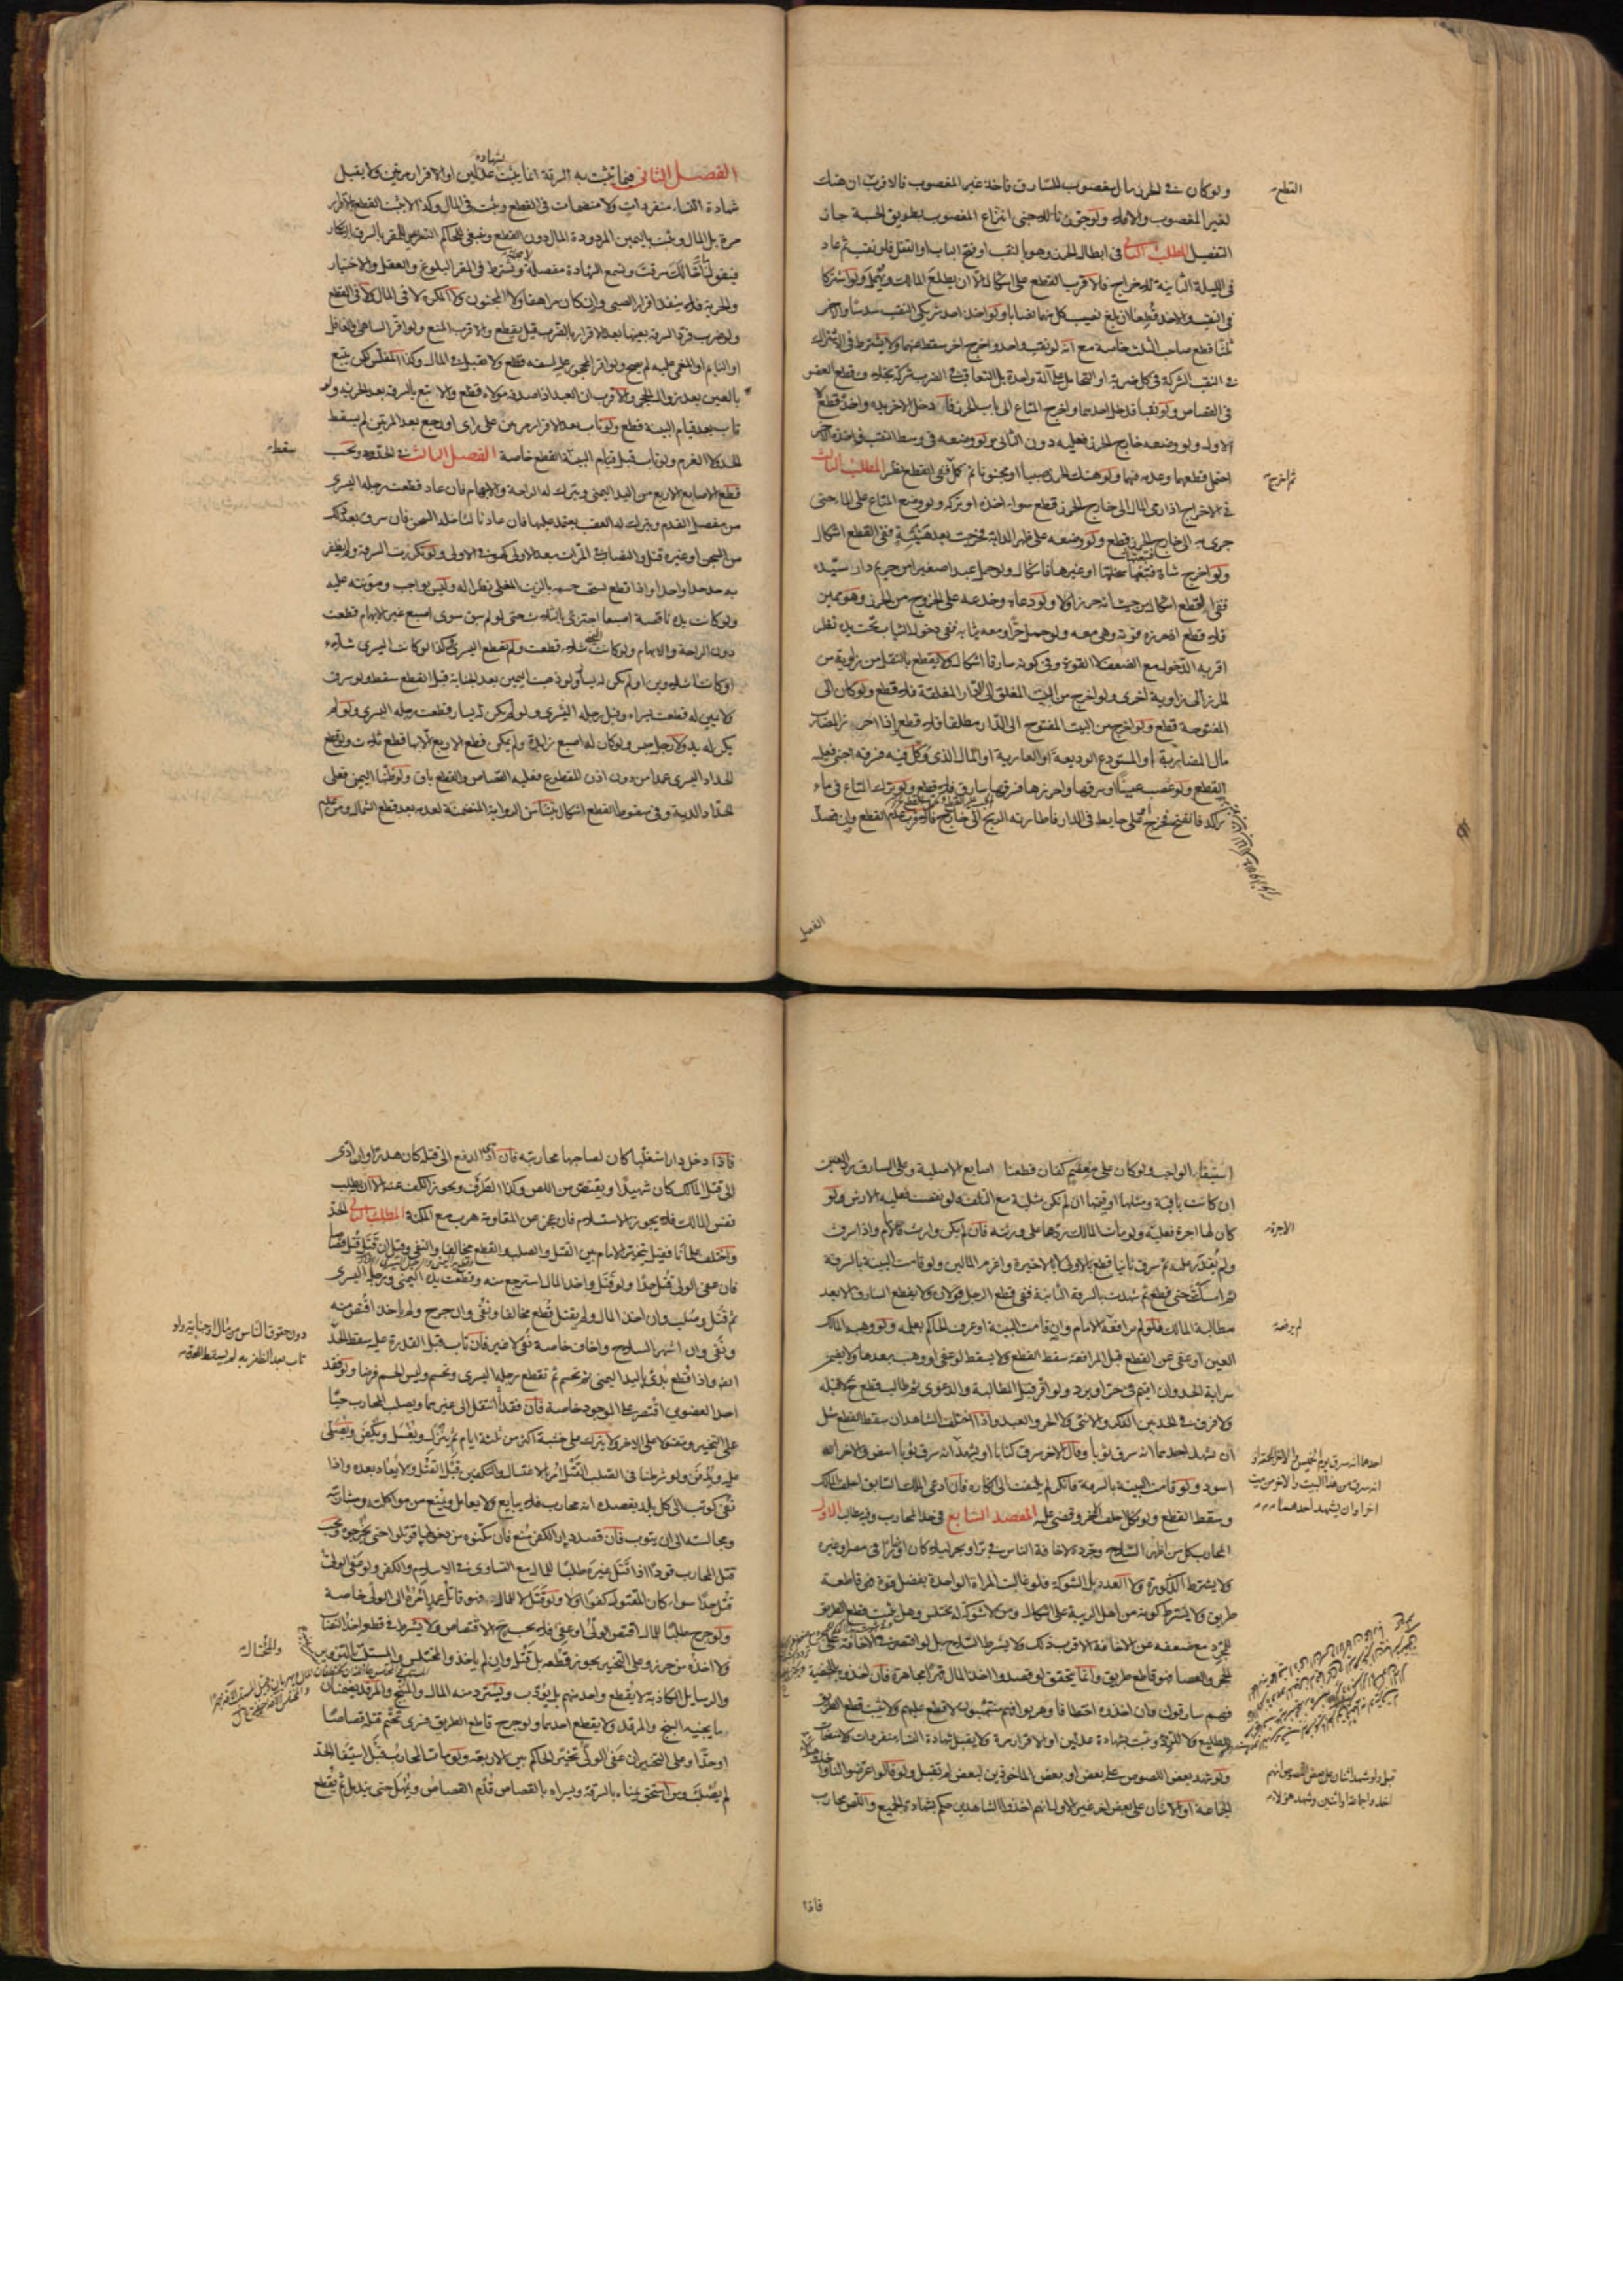 ولو كان في الحرز مال مغصوب للسارق فاخذ غير المغصوب فالاقرب ان هتك
القطع
لغير المغصوب والا فلا ولو جوزنا للاجنبي انتزاع المغصوب بطريق الحسبة جاز
التفصيل المطلب الثاني في ابطال الحرز وهو بالنقب او فتح الباب او القفل فلو نقب ثم عاد
في الليلة الثانية للاخراج فالاقرب القطع على اشكال الا ان يطلع المالك ويهمل ولو اشتركا
في النقب والاخذ قطعا ان بلغ نصيب كل منهما نصابا ولو اخذ احد شريكي النقب سدسا والاخر
ثلثا قطع صاحب الثلث خاصة مع انه لو نقب واحد واخرج اخر سقط عنهما ولا يشترط في الاشتراك
في النقب الشركة في كل ضربة او التحامل على آلة واحدة بل التعاقب في الضرب شركة بخلاف قطع العضو
في القصاص ولو نقبا فدخل احدهما واخرج المتاع الى باب الحرز فادخل الاخر يده واخذ قطع
الاول ولو وضعه خارج الحرز فعليه دون الثاني ولو وضعه في وسط النقب فاخذه الاخر
احتمل قطعهما وعدمه فيهما ولو هتك الحرز صبيا او مجنونا ثم كملا ففي القطع نظر المطلب الثالث
ثم اخرج
في الاخراج اذا رمى المال الى خارج الحرز قطع سواء اخذه او تركه ولو وضع المتاع على الماء حتى
جرى به الى خارج الحرز قطع ولو وضعه على ظهر الدابة فخرجت بعد هنيئة ففي القطع اشكال
ولو اخرج شاة فتبعها سخلتها او غيرها فاشكال ولو حمل عبدا صغيرا من حريم دار سيده
ففي القطع اشكال من حيث انه حرز او لا ولو دعاه وخدعه على الخروج من الحرز وهو مميز
فلا قطع اذ حرزه قوته وهي معه ولو حمل حرا ومعه ثيابه ففي دخول الثياب تحت يده نظر
اقربه الدخول مع الضعف لا القوة وفي كونه سارقا اشكال ولا يقطع بالنقل من زاوية من
الحرز الى زاوية اخرى ولو اخرج من البيت المغلق الى الدار المغلقة فلا قطع ولو كان الى
المفتوحة قطع ولو اخرج من البيت المفتوح الى الدار مطلقا فلا قطع واذا احرز المضارب
مال المضاربة او المستودع الوديعة او العارية او المال الذي وكل فيه فسرقه اجنبي فعليه
القطع ولو غصب عينا او سرقها واحرزها فسرقها سارق فلا قطع ولو ترك المتاع في ماء
راكد فانفتح فخرج او على حايط في الدار فاطارته الريح الى خارج فالاقرب عدم القطع وان قصد
الفصل
الفصل الثاني فيما يثبت به السرقة انما يثبت بشهادة عدلين او الاقرار مرتين ولا يقبل
شهادة النساء منفردات ولا منضمات في القطع ويثبت في المال وكذا لا يثبت القطع بالاقرار
مرة بل المال ويثبت باليمين المردودة المال دون القطع وينبغي للحاكم التعريض للمقر بالسرقة بانكار
فيقول ما اخالك سرقت ولتسمع الشهادة مفصلة لا مجملة ويشترط في المقر البلوغ والعقل والاختيار
والحرية فلا ينفذ اقرار الصبي وان كان مراهقا ولا المجنون ولا المكره لا في المال ولا في القطع
ولو ضرب فرد السرقة بعينها بعد الاقرار بالضرب قيل يقطع والاقرب المنع ولو اقر الساهي او الغافل
او النايم او المغمى عليه لم يصح ولو اقر المحجور عليه لسفه قطع ولا يقبل في المال وكذا المفلس لكن يتبع
بالعين بعد زوال الحجر والاقرب ان العبد اذا صدقه مولاه قطع والا تبع بالسرقة بعد الحرية ولو
تاب بعد قيام البينة قطع ولو تاب بعد الاقرار مرتين على راي او رجع بعد المرتين لم يسقط
الحد ولا الغرم ولو تاب قبل قيام البينة القطع خاصة الفصل الثالث في الحد ويجب
سقط
قطع الاصابع الاربع من اليد اليمنى ويترك له الراحة والابهام فان عاد قطعت رجله اليسرى
من مفصل القدم ويترك له العقب يعتمد عليها فان عاد ثالثا خلد السجن فان سرق بعد ذلك
من السجن او غيره قتل والنصاب في المرات بعد الاولى كهو في الاولى ولو تكررت السرقة ولم يظفر
به حد حدا واحدا واذا قطع يستحب حسمه بالزيت المغلي نظرا له وليس بواجب ومؤنته عليه
ولو كانت يده ناقصة اصبعا اجتزئ بالثلاث حتى لو لم يبق سوى اصبع غير الابهام قطعت
دون الراحة والابهام ولو كانت اليمنى شلاء قطعت ولم تقطع اليسرى وكذا لو كانت اليسرى شلاء
او كانتا شلاوين او لم يكن له يسار ولو ذهبت اليمين بعد الجناية قبل القطع سقط ولو سرق
ولا يمين له قطعت يسراه وقيل رجله اليسرى ولو لم يكن له يسار قطعت رجله اليسرى ولو لم
يكن له يد ولا رجل حبس ولو كان له اصبع زايدة ولم يمكن قطع الاربع الا بها قطع ثلاث ولو قطع
الحداد اليسرى عمدا من دون اذن المقطوع فعليه القصاص والقطع باق ولو ظنها اليمنى فعلى
الحداد الدية وفي سقوط القطع اشكال ينشا من الرواية المتضمنة لعدمه بعد قطع الشمال ومن عدم
استيفاء الواجب ولو كان على معصم كفان قطعنا اصابع الاصلية وعلى السارق رد العين
ان كانت باقية ومثلها او قيمتها ان لم تكن مثلية مع التلف ولو نقصت فعليه الارش ولو
كان لها اجرة فعليه ولو مات المالك ردها على ورثته فان لم يكن وارث فالامام واذا سرق
الاجرة
ولم يقدر عليه ثم سرق ثانيا قطع بالاولى لا بالاخيرة واغرم المالين ولو قامت البينة بالسرقة
ثم امسكت حتى قطع ثم شهدت بالسرقة الثانية ففي قطع الرجل قولان ولا يقطع السارق الا بعد
مطالبة المالك فلو لم يرافعه الامام وان قامت البينة او عرف الحاكم بعلمه ولو وهبه المالك
لم يرفعه
العين او عفى عن القطع قبل المرافعة سقط القطع ولا يسقط لو عفى او وهب بعدها ولا يضمن
سراية الحد وان اقيم في حر او برد ولو اقر قبل المطالبة والدعوى ثم طالب قطع ح لا قبله
ولا فرق في الحد بين الذكر والانثى ولا الحر والعبد واذا اختلف الشاهدان سقط القطع مثل
ان يشهد احدهما انه سرق ثوبا وقال الاخر سرق كتابا او يشهد انه سرق ثوبا ابيض والاخر انه
احدهما انه سرق يوم الخميس والاخر الجمعة او
انه سرق من هذا البيت والاخر من بيت
اخر او ان يشهد احدهما
اسود ولو قامت البينة بالسرقة فانكر لم يلتفت الى انكاره فان ادعى الملك السابق احلف المالك
وسقط القطع ولو نكل احلف الاخر وقضي عليه المقصد السابع في حد المحارب وفيه مطالب الاول
المحارب كل من اظهر السلاح وجرده لاخافة الناس في بر او بحر ليلا كان او نهارا في مصر او غيره
ولا يشترط الذكورة ولا العدد بل الشوكة فلو غالبت المراة الواحدة بفضل قوة فهي قاطعة
طريق ولا يشترط كونه من اهل الريبة على اشكال ومن لا شوكة له مختلس وهل يثبت قطع الطريق
للمجرد مع ضعفه عن الاخافة الاقرب ذلك ولا يشترط السلاح بل لو اقتصر في الاخافة على
الحجر والعصا فهو قاطع طريق وانما يتحقق لو قصدوا اخذ المال قهرا مجاهرة فان اخذوه بالخفية
فهم سارقون وان اخذوه اختطافا وهربوا فهم منتهبون لا قطع عليهم ولا يثبت قطع الطريق
للطليع ولا للردء ويثبت بشهادة عدلين او الاقرار مرة ولا يقبل شهادة النساء منفردات ولا منضمات
ولو شهد بعض اللصوص على بعض او بعض الماخوذين لبعض لم تقبل ولو قالوا عرضوا لنا واخذوا
قبل ولو شهد اثنان على بعض اللصوص انهم
اخذوا جماعة او اثنين وشهد هؤلاء
الجماعة او الاثنان على بعض اخر غير الاول انهم اخذوا الشاهدين حكم بشهادة الجميع واللص محارب
فاذا
فاذا دخل دارا متغلبا كان لصاحبها محاربته فان ادى الدفع الى قتله كان هدرا وان ادى
الى قتل المالك كان شهيدا ويقتص من اللص وكذا الطرف ويجوز الكف عنه الا ان يطلب
نفس المالك فلا يجوز الاستسلام فان عجز عن المقاومة هرب مع المكنة المطلب الثاني الحد
واختلف علماؤنا فقيل يتخير الامام بين القتل والصلب والقطع مخالفا والنفي وقيل ان قتل قتل قصاصا
فان عفى الولي قتل حدا ولو قتل واخذ المال استرجع منه وقطعت يده اليمنى ورجله اليسرى
ثم قتل وصلب وان اخذ المال ولم يقتل قطع مخالفا ونفي وان جرح ولم ياخذ اقتص منه
ونفي وان اشهر السلاح واخاف خاصة نفي لا غير فان تاب قبل القدرة عليه سقط الحد
دون حقوق الناس من مال او جناية ولو
تاب بعد الظفر به لم يسقط الحد
واذا قطع بدئ باليد اليمنى ثم تحسم ثم تقطع رجله اليسرى وتحسم وليس الحسم فرضا ولو فقد
احد العضوين اقتصر على الموجود خاصة فان فقدا انتقل الى غيرهما ويصلب المحارب حيا
على التخيير ومقتولا على الاخر ولا يترك على خشبة اكثر من ثلثة ايام ثم ينزل ويغسل ويكفن ويصلى
عليه ويدفن ولو شرطنا في الصلب القتل امر بالاغتسال والتكفين قبل القتل ولا يعاد بعده واذا
نفي كوتب الى كل بلد يقصده انه محارب فلا يبايع ولا يعامل ويمنع من مواكلته ومشاربته
ومجالسته الى ان يتوب فان قصد دار الكفر منع فان مكنوه من دخولها قوتلوا حتى يخرجوه ويجب
قتل المحارب قودا اذا قتل غيره طلبا للمال مع التساوي في الاسلام والكفر ولو عفى الولي
قتل حدا سواء كان المقتول كفوا او لا ولو قتل لا للمال فهو قاتل عمد امره الى الولي خاصة
ولو جرح طلبا للمال اقتص الولي او عفى فلا يجب ح الاقتصاص ولا يشترط في قطعه اخذ النصاب
ولا اخذه من حرز وعلى التخيير يجوز قطعه بل قتله وان لم ياخذ والمختلس والمستلب بالتزوير
والمحتال
والرسايل الكاذبة لا يقطع واحد منهم بل يؤدب ويسترد منه المال والمبنج والمرقد يضمنان
ما يجنيه البنج والمرقد ولا يقطع احدهما ولو جرح قاطع الطريق فسرى تحتم قتله قصاصا
او حدا وعلى التخيير ان عفى الولي تخير الحاكم بين الاربعة ولو مات المحارب قبل استيفاء الحد
لم يصلب ومن استحق يمناه بالسرقة ويسراه بالقصاص قدم القصاص ويمهل حتى يندمل ثم يقطع